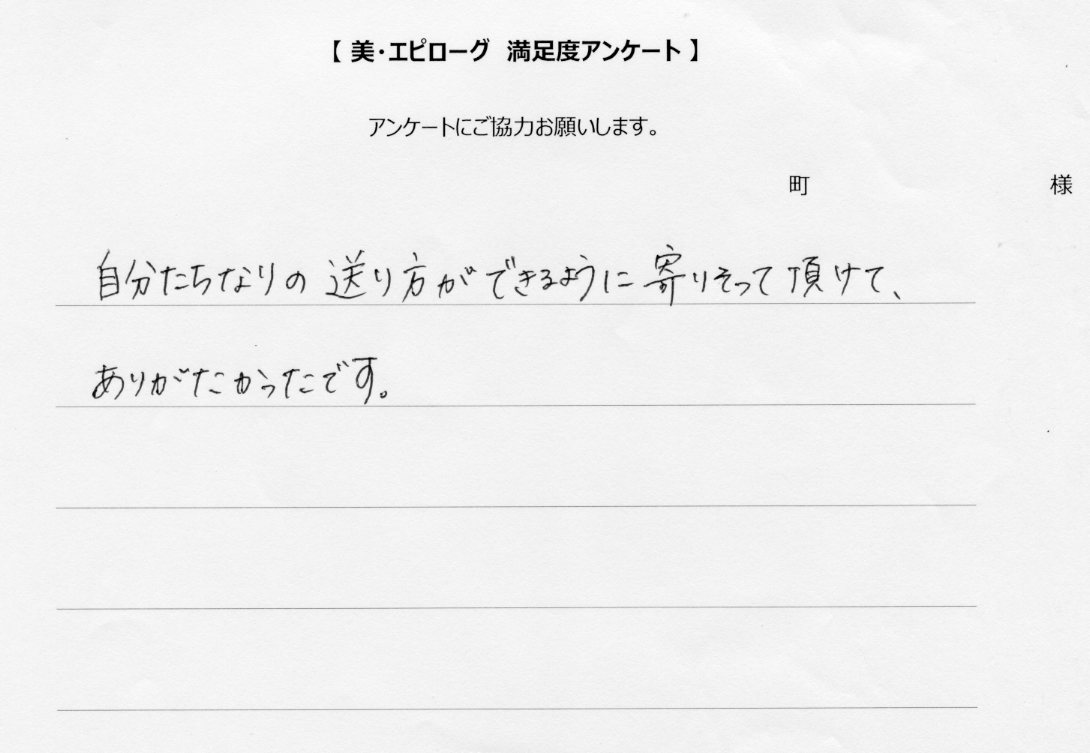 【 美・エピローグ 満足度アンケート 】
アンケートにご協力お願いします。
町 様
自分たちなりの送り方ができるように寄りそって頂けて、
ありがたかったです。